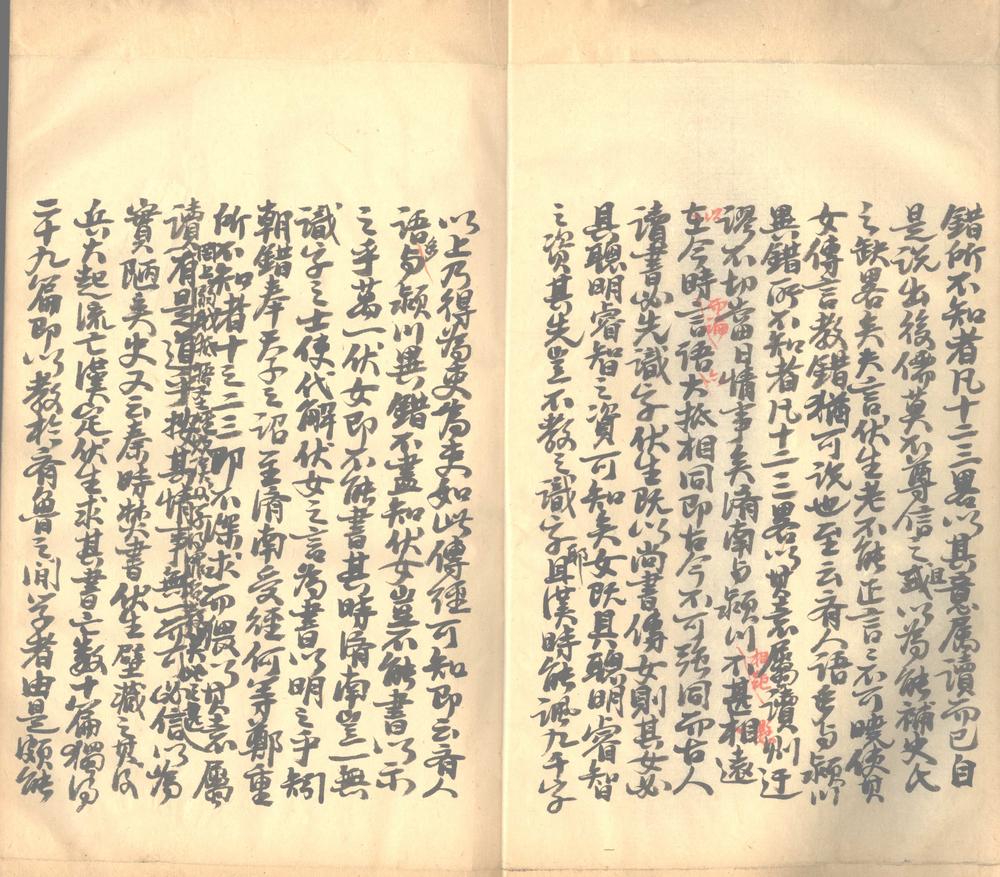 錯所不知者凡十二三畧以其意属讀而已自
是説出後儒莫不尊信之且或以為能補史氏
之缺畧矣夫言伏生老不能正言言不可曉使其
女傳言教錯猶可説也至云齊人語多与潁川
異錯所不知者凡十二三畧以其意属讀則迂
謬不切當日情事矣濟南与潁川不甚相遠
在今時言語大抵相同即古今不可強同而古人
讀書必先識字伏生既以尚書傳女則其女必
具聰明睿智之資可知矣女既具聰明睿智
之資其先豈不教之識字耶且漢時能諷九千字
以上乃得為吏為吏如此傳經可知即云齊人
語多与潁川異錯不盡知伏女豈不能書以示
之乎萬一伏女即不能書其時濟南豈無一
識字之士使代解伏女之言為書以明之乎矧
朝錯奉天子之詔至濟南受經何等鄭重
所不知者十之二三即不深求而猥以其意属
讀有是道乎按其情事無一可信以為
實陋矣史又云秦時焚書伏生壁藏之其後
兵大起流亡漢定伏生求其書亡數十篇獨得
二十九篇即以教於齊魯之間学者由是頗能